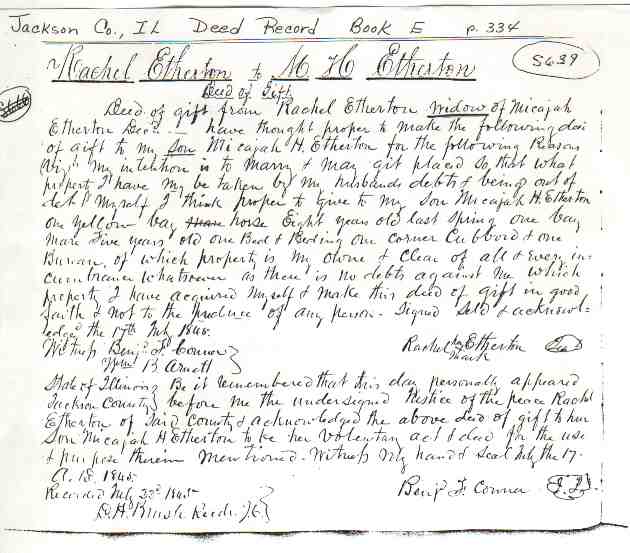 Jackson Co., IL Deed Record Book E p. 334
Rachel Etherton to M H Etherton
S639
Deed of Gift
Deed of gift from Rachel Etherton widow of Micajah
Etherton Decd. — have thought proper to make the following deed
of gift to my son Micajah H. Etherton for the following Reasons
Viz. My intention is to Marry & May git placed So that what
property I have my be taken by my husbands debts & being out of
debt Myself I think proper to Give to my Son Micajah H. Etherton
one yellow bay horse Eight years old last Spring one bay
Mare Five years old one Bed & Beding one corner Cubbord & one
Bureau, of which property is my owne & Clear of all & Every in=
cumbrance whatsoever as there is no debts against Me which
property I have acquired Myself & Make this deed of gift in good
faith & not to the produce of any person - Signed Seld & acknowl=
edged the 17th July 1845.
Witness Benj. F. Conner
Wm. B Arnett
Rachel her Etherton Seal
mark
State of Illinois
Jackson County
Be it remembered that this day personally appeared
before me the undersigned Justice of the peace Rachel
Etherton of Said County & acknowledged the above deed of gift to her
Son Micajah H Etherton to be her voluntary act & deed for the use
& purpose therein Mentioned. Witness My hand & Seal July the 17.
A. D. 1845.
Recorded July 22d 1845
D. H. Brush Recdr. J.C.
Benj. F. Conner